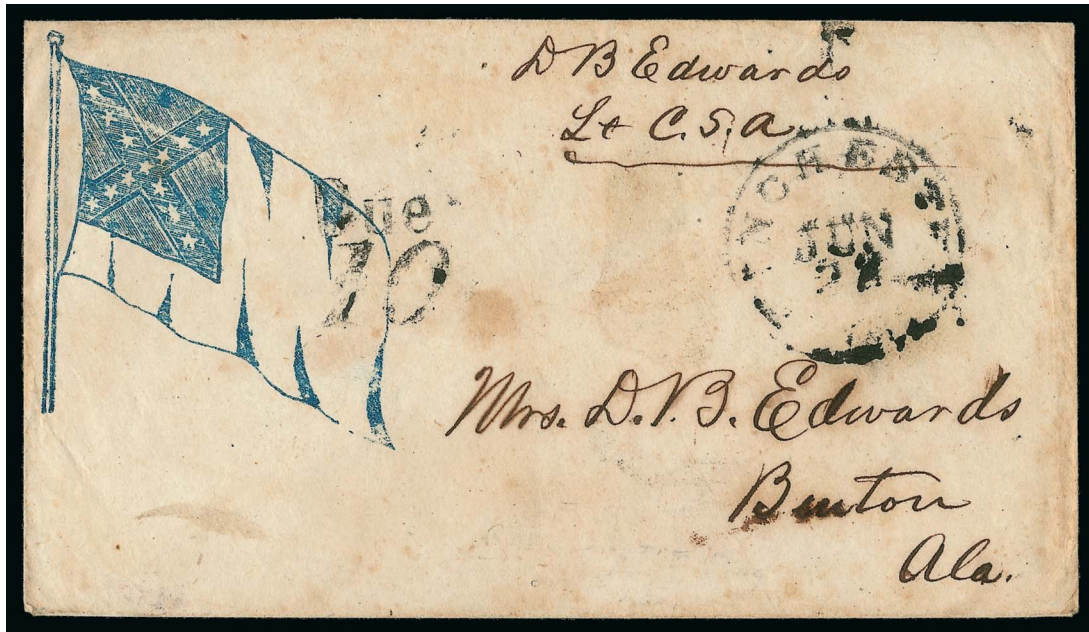 D B Edwards
Lt C.S.A
Due
10
JUN
Mrs. D. B. Edwards
Benton
Ala.